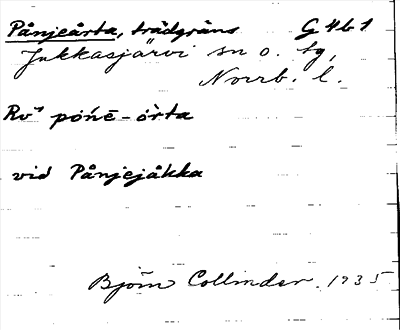 Pånjeårta, trädgräns G 4 b 1
Jukkasjärvi sn o. tg,
Norrb. l.
Rv" póńē - ò̄rta
vid Pånjejåkka
Björn Collinder. 1935